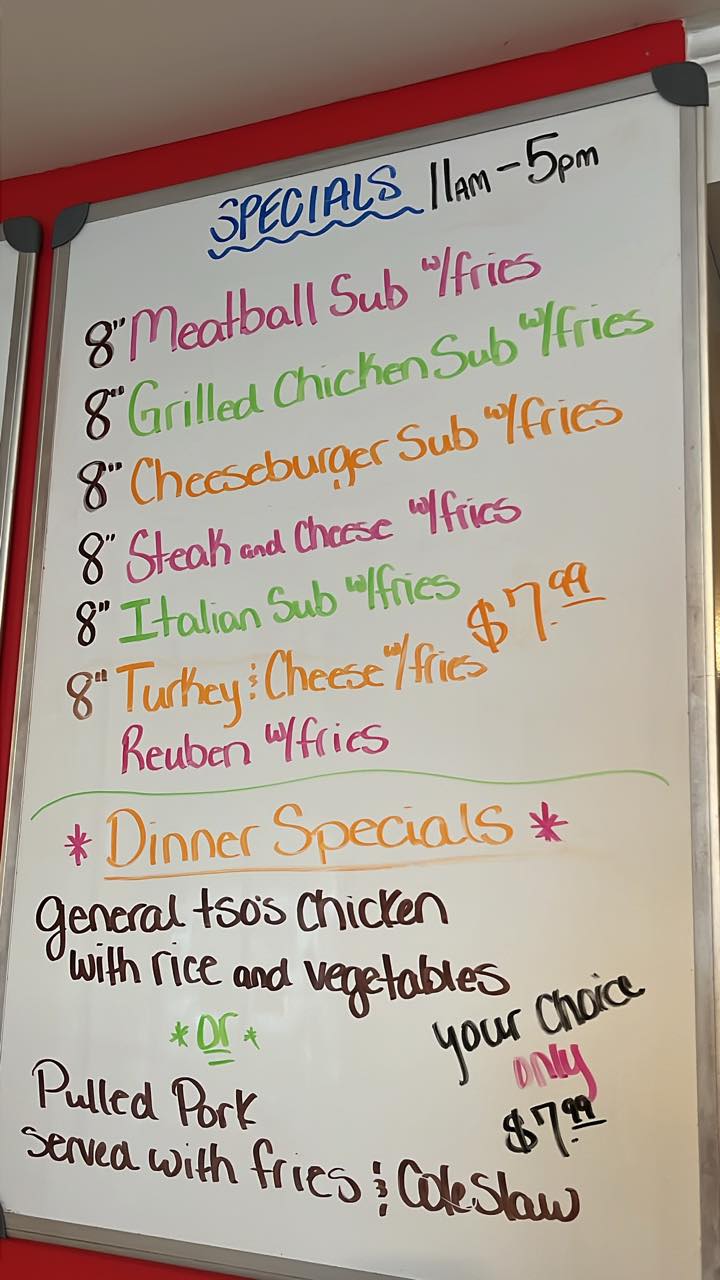 SPECIALS 11AM - 5pm
8" Meatball Sub w/fries
8" Grilled Chicken Sub w/fries
8" Cheeseburger Sub w/fries
8" Steak and Cheese w/fries
8" Italian Sub w/fries
$7.99
8" Turkey & Cheese w/fries
Reuben w/fries
* Dinner Specials *
General tso's Chicken
with rice and vegetables
*or*
your choice
only
$7.99
Pulled Pork
served with fries & ColeSlaw